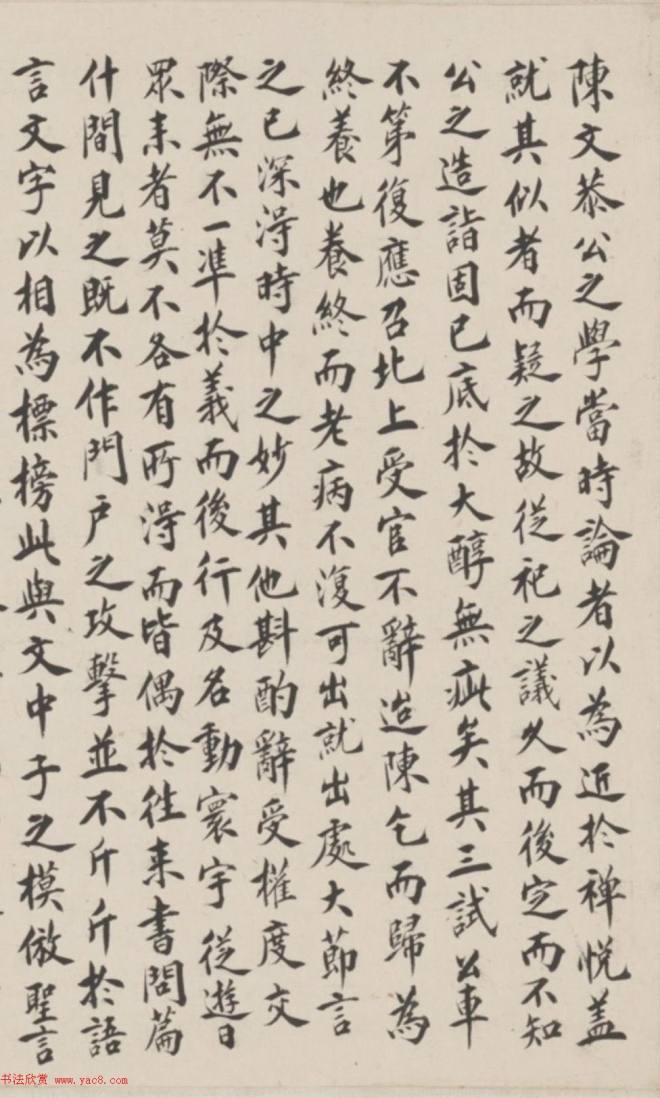 陳文恭公之學當時論者以為近於禅悦盖
就其似者而疑之故從祀之議久而後定而不知
公之造詣固已底於大醇無疵矣其三試公車
不第復應召北上受官不辭迨陳乞而歸為
終養也養終而老病不復可出就出處大節言
之已深淂時中之妙其他斟酌辭受權度交
際無不一準於義而後行及名動寰宇從遊日
眾来者莫不各有所淂而皆偶於往来書問篇
什間見之既不作門户之攻擊並不斤斤於語
言文字以相為標榜此與文中子之模倣聖言
书法欣赏 www.yac8.com